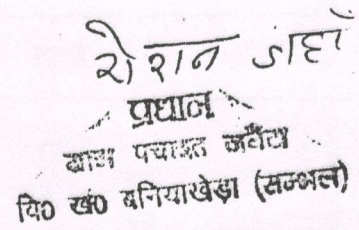 रोशन जहाँ
प्रधान
ग्राम पंचायत जनैटा
वि० खं० बनियाखेड़ा (सम्भल)